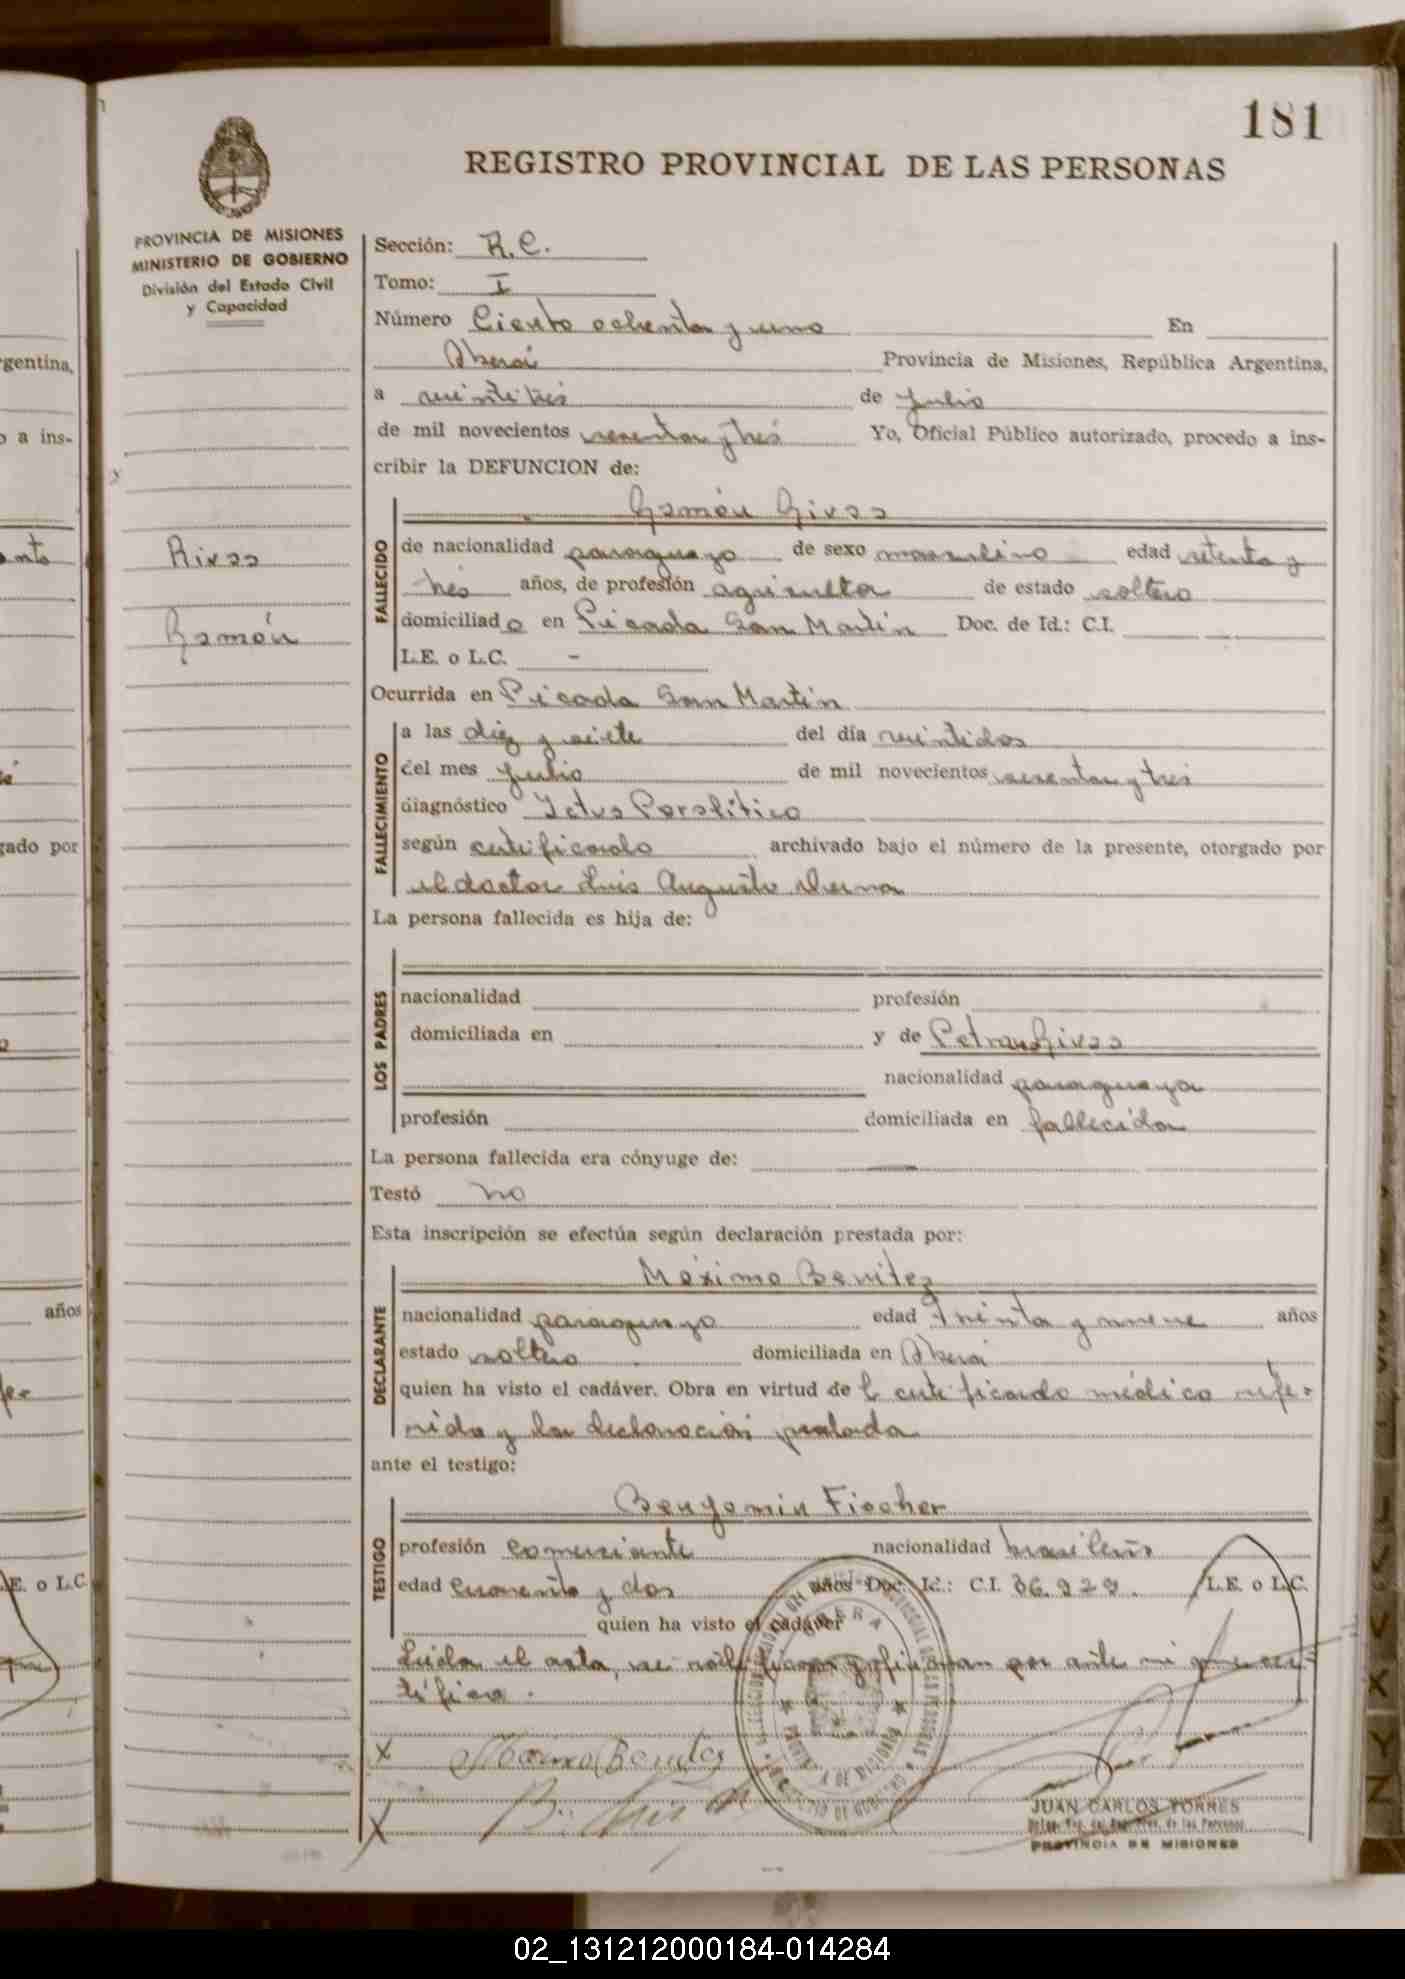 181
REGISTRO PROVINCIAL DE LAS PERSONAS
PROVINCIA DE MISIONES
MINISTERIO DE GOBIERNO
División del Estado Civil
y Capacidad
Sección: R.C.
Tomo: I
Número Ciento ochenta y uno En
Oberá Provincia de Misiones, República Argentina,
a veintitrés de Julio
de mil novecientos sesenta y tres Yo, Oficial Público autorizado, procedo a ins-
cribir la DEFUNCION de:
Ramón Rivas
Rivas
Ramón
FALLECIDO
de nacionalidad paraguayo de sexo masculino edad setenta y
tres años, de profesión agricultor de estado soltero
domiciliado en Picada San Martín Doc. de Id.: C.I.
L.E. o L.C. -
Ocurrida en Picada San Martín
FALLECIMIENTO
a las diez y siete del día veintidos
del mes Julio de mil novecientos sesenta y tres
diagnóstico Ictus Paralítico
según certificado archivado bajo el número de la presente, otorgado por
el doctor Luis Augusto
La persona fallecida es hija de:
LOS PADRES
nacionalidad profesión
domiciliada en y de Petrona Rivas
nacionalidad paraguaya
profesión domiciliada en fallecida
La persona fallecida era cónyuge de: —
Testó no
Esta inscripción se efectúa según declaración prestada por:
Máximo Benitez
DECLARANTE
nacionalidad paraguayo edad treinta y nueve años
estado soltero domiciliada en Oberá
quien ha visto el cadáver. Obra en virtud del certificado médico refe-
rido y la declaración prestada
ante el testigo:
Benjamin Fischer
TESTIGO
profesión comerciante nacionalidad brasileño
edad cuarenta y dos años Doc. Id.: C.I. 36.929. L.E. o L.C.
quien ha visto el cadáver
Leída el acta, se ratifican y firman por ante mi que cer-
tifico.
X Maximo Benitez
X
OBERA
JUAN CARLOS TORRES
PROVINCIA DE MISIONES
gentina,
o a ins-
gado por
años
.E. o L.C.
V
X
Y
Z
02_131212000184-014284